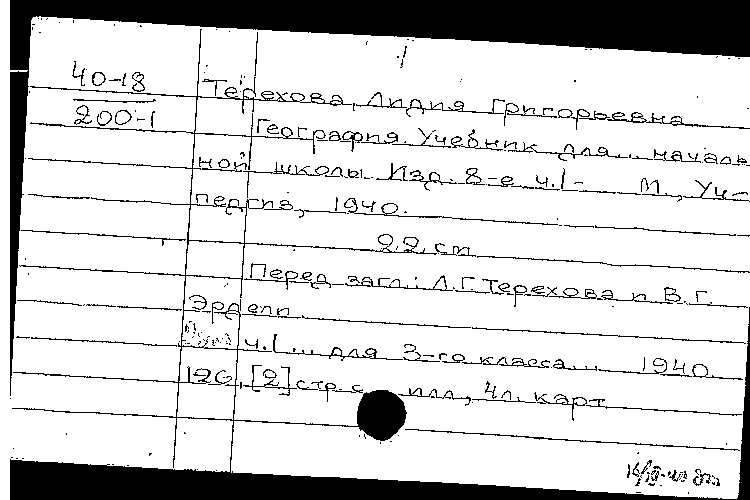 40-18
200-1
Терехова, Лидия Григорьевна
География. Учебник для... началь
ной школы. Изд. 8-е ч.I- М., Уч-
педгиз, 1940.
22 см
Перед загл.: Л.Г. Терехова и В.Г.
Эрдели.
ч.I... для 3-го класса... 1940.
126, [2] стр с илл, 4л. карт